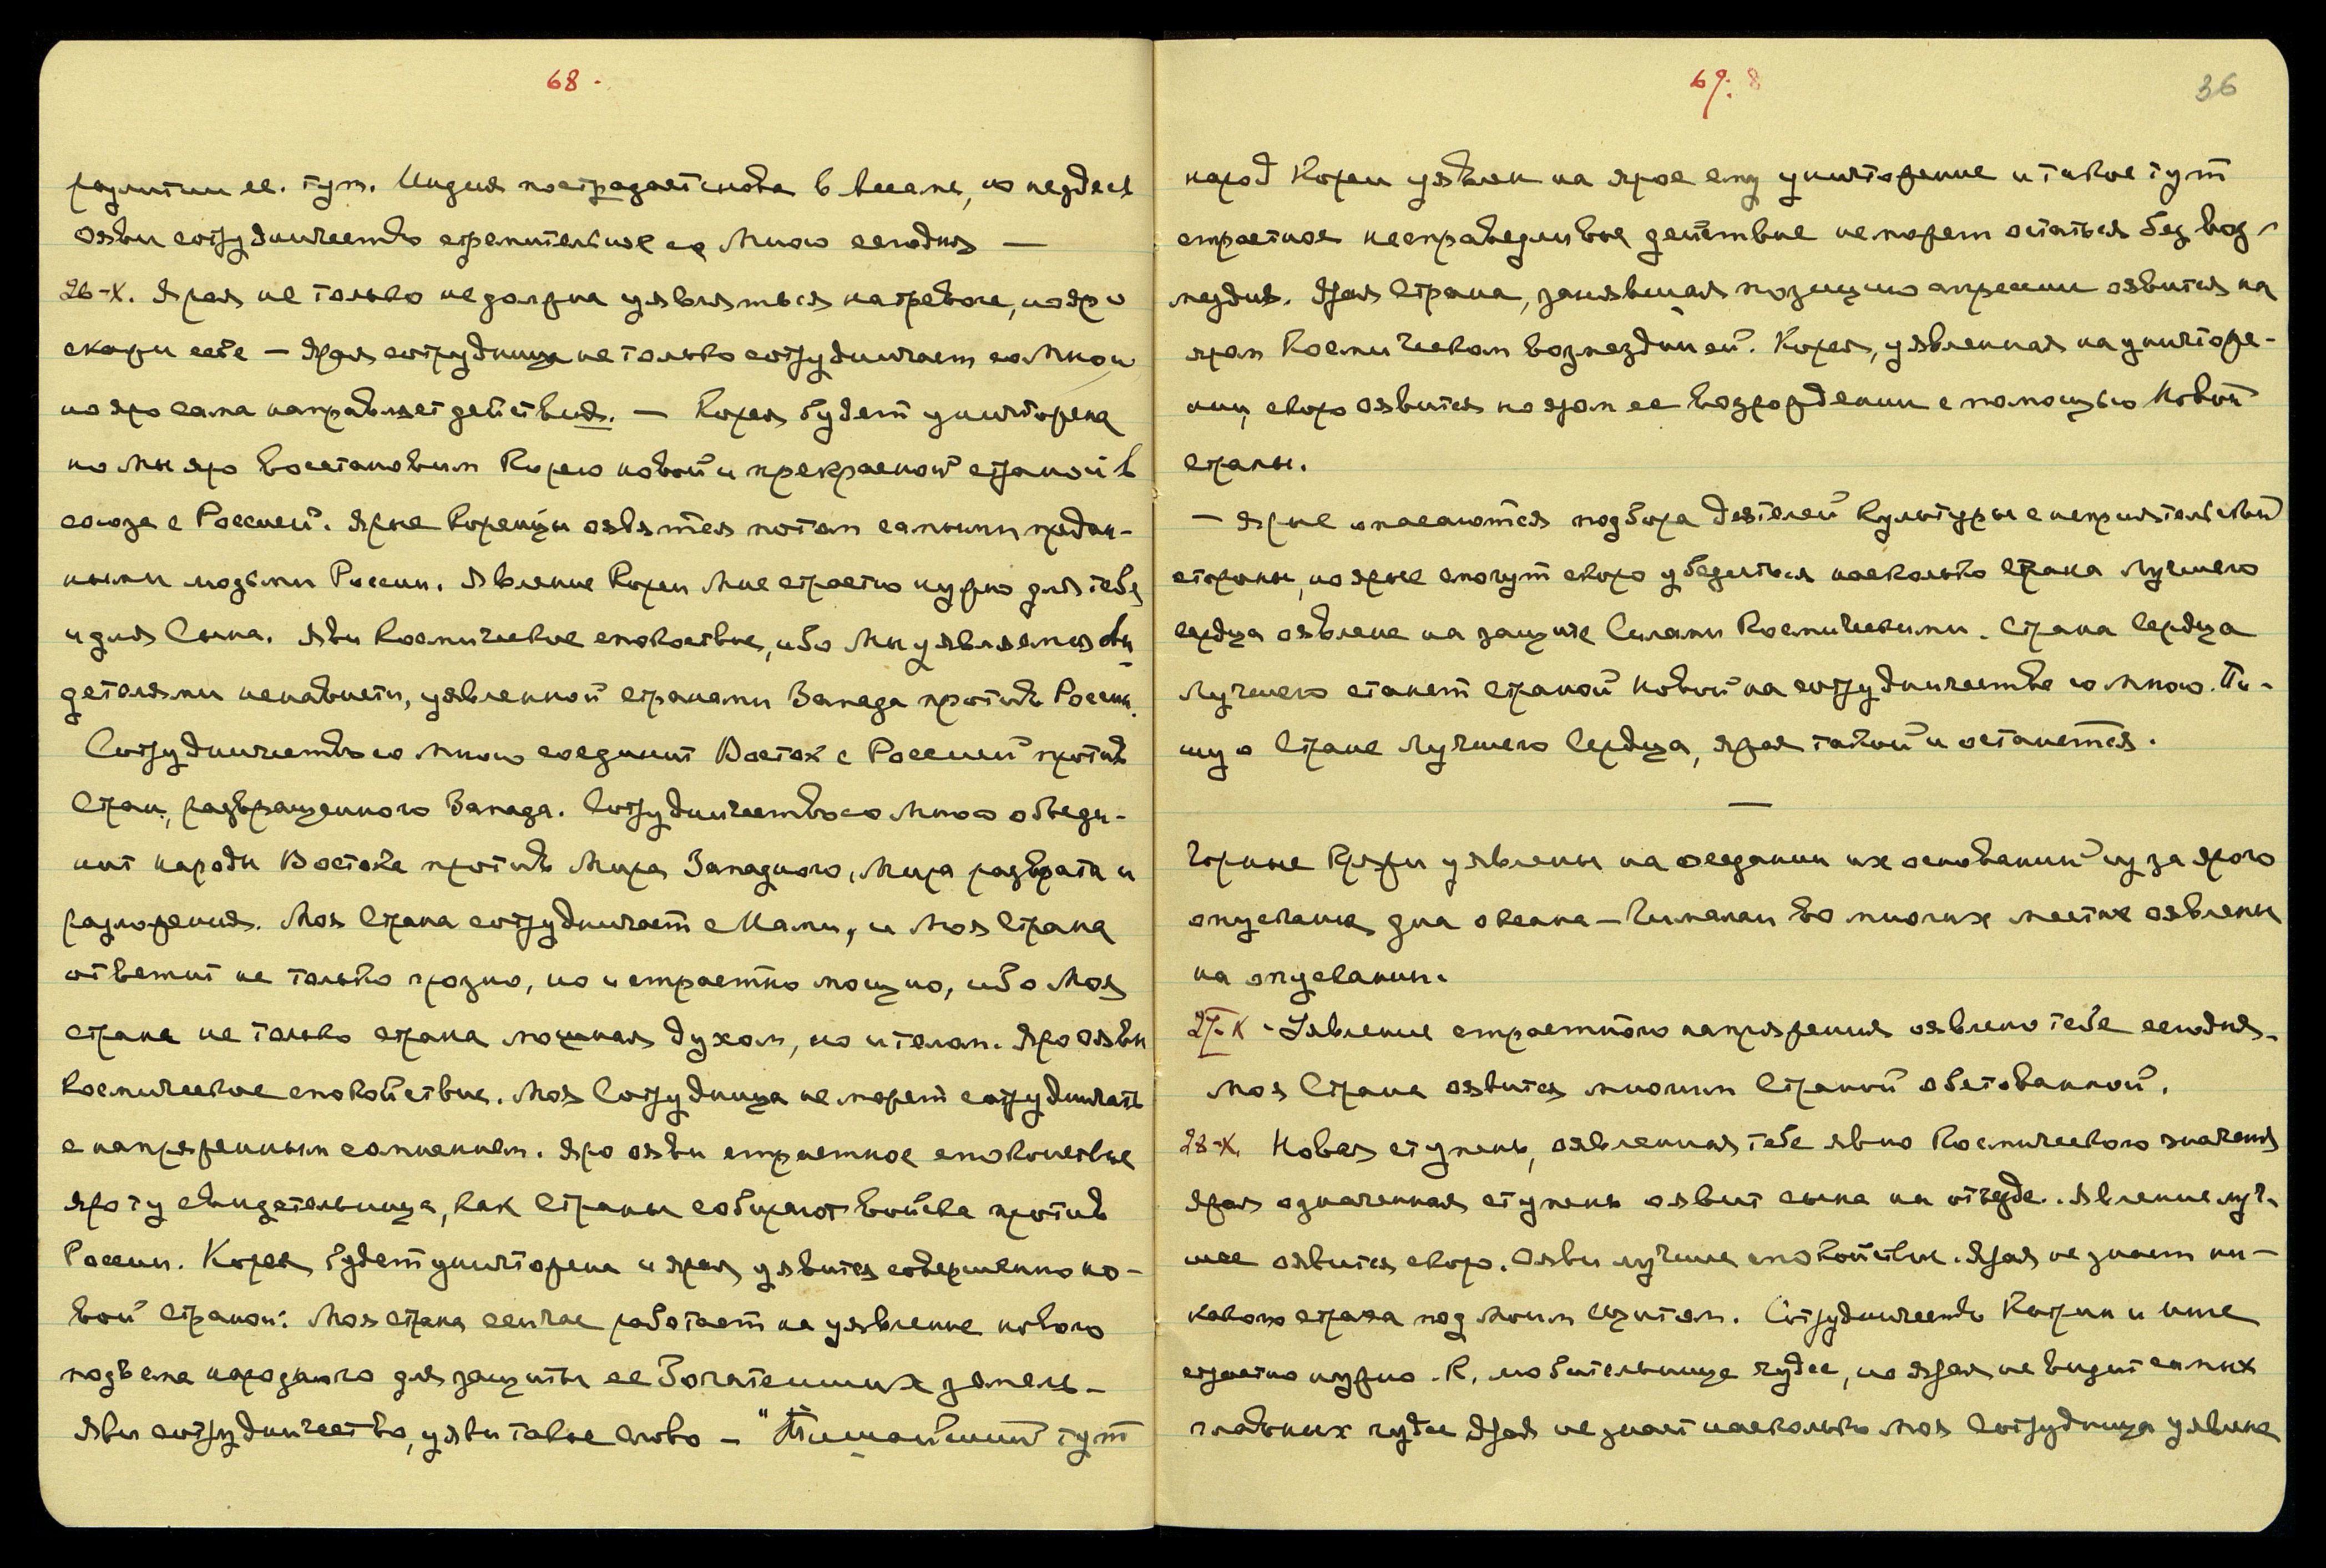 68.
развитии ее. тут. Индия пострадает снова в весне, но не здесь
Ояви сотрудничество стремительное со Мною сегодня —
26-X. Ярая не только не должна уявляться на тревоге, но яро
скажи себе — Ярая сотрудница не только сотрудничает со Мною
но яро сама направляет действия. — Корея будет уничтожена
но мы яро восстановим Корею новой и прекрасной страной в
союзе с Россией. Ярые Корейцы оявятся потом самыми предан-
ными людьми России. Явление Кореи Мне страстно нужно для тебя
и для Сына. Яви Космическое спокойствие, ибо Мы уявляемся сви-
детелями ненависти, уявленной странами Запада против России.
Сотрудничество со Мною соединит Восток с Россией против
Стран, развращенного Запада. Сотрудничество со Мною объеди-
нит народы Востока против Мира Западного, Мира разврата и
разложения. Моя Страна сотрудничает с Нами, и Моя Страна
ответит не только грозно, но и страстно мощно, ибо Моя
страна не только страна мощная духом, но и телом. Яро ояви
Космическое спокойствие. Моя Сотрудница не может сотрудничать
с напряженным сомнением. Яро ояви страстное спокойствие
яро ту свидетельница, как Страны собирают войска против
России. Корея будет уничтожена и ярая уявится совершенно но-
вой Страной. Моя страна сейчас работает на уявление нового
подъема народного для защиты ее богатейших земель —
Яви сотрудничество, уяви такое слово — "Тишайший тут
69.
36
народ Кореи уявлен на ярое ему уничтожение и такое тут
страстное несправедливое действие не может остаться без воз-
мездия. Ярая Страна, занявшая позицию агрессии оявится на
яром Космическом возмездии ей. Корея, уявленная на уничтоже-
нии, скоро оявится на яром ее возрождении с помощью Новой
страны.
— Ярые опасаются подбора деятелей Культуры с неприятельской
стороны, но ярые смогут скоро убедиться насколько Страна Лучшего
Сердца оявлена на защите Силами Космическими. Страна Сердца
Лучшего станет Страной Новой на сотрудничестве со Мною. Пи-
шу о Стране Лучшего Сердца, ярая такой и останется.
—
Горные Кряжи уявлены на оседании их оснований из за ярого
опускания дна океана — Гималаи во многих местах оявлены
на опускании.
27-X - Уявление страстного напряжения оявлено тебе сегодня.
Моя Страна оявится многим Страной обетованной.
28-X. Новая ступень, оявленная тебе явно Космического значения
Ярая означенная ступень оявит сына на отъезде. Явление луч-
шее оявится скоро. Ояви лучшее спокойствие. Ярая не знает ни-
какого страха под Моим Щитом. Сотрудничество и
страстно нужно. К. любительница чудес, но ярая не видит самых
главных чудес Ярая не знает насколько Моя Сотрудница уявлена